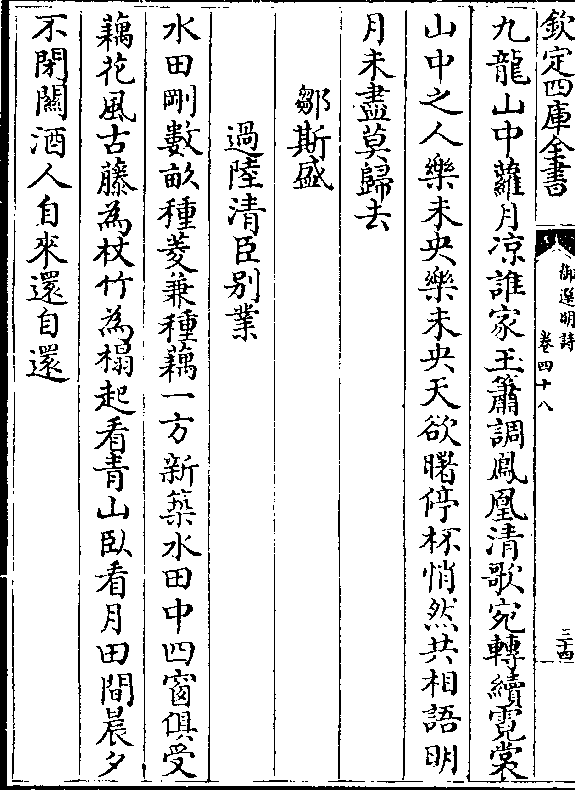 欽定四庫全書
御選明詩
卷四十八
三十四
九龍山中蘿月凉誰家玉簫調鳳凰清歌宛轉續霓裳
山中之人樂未央樂未央天欲曙停杯悄然共相語明
月未盡莫歸去
鄒斯盛
過陸清臣别業
水田剛數畝種菱兼種藕一方新築水田中四窗俱受
藕花風古藤為杖竹為榻起看青山臥看月田間晨夕
不閉關酒人自來還自還